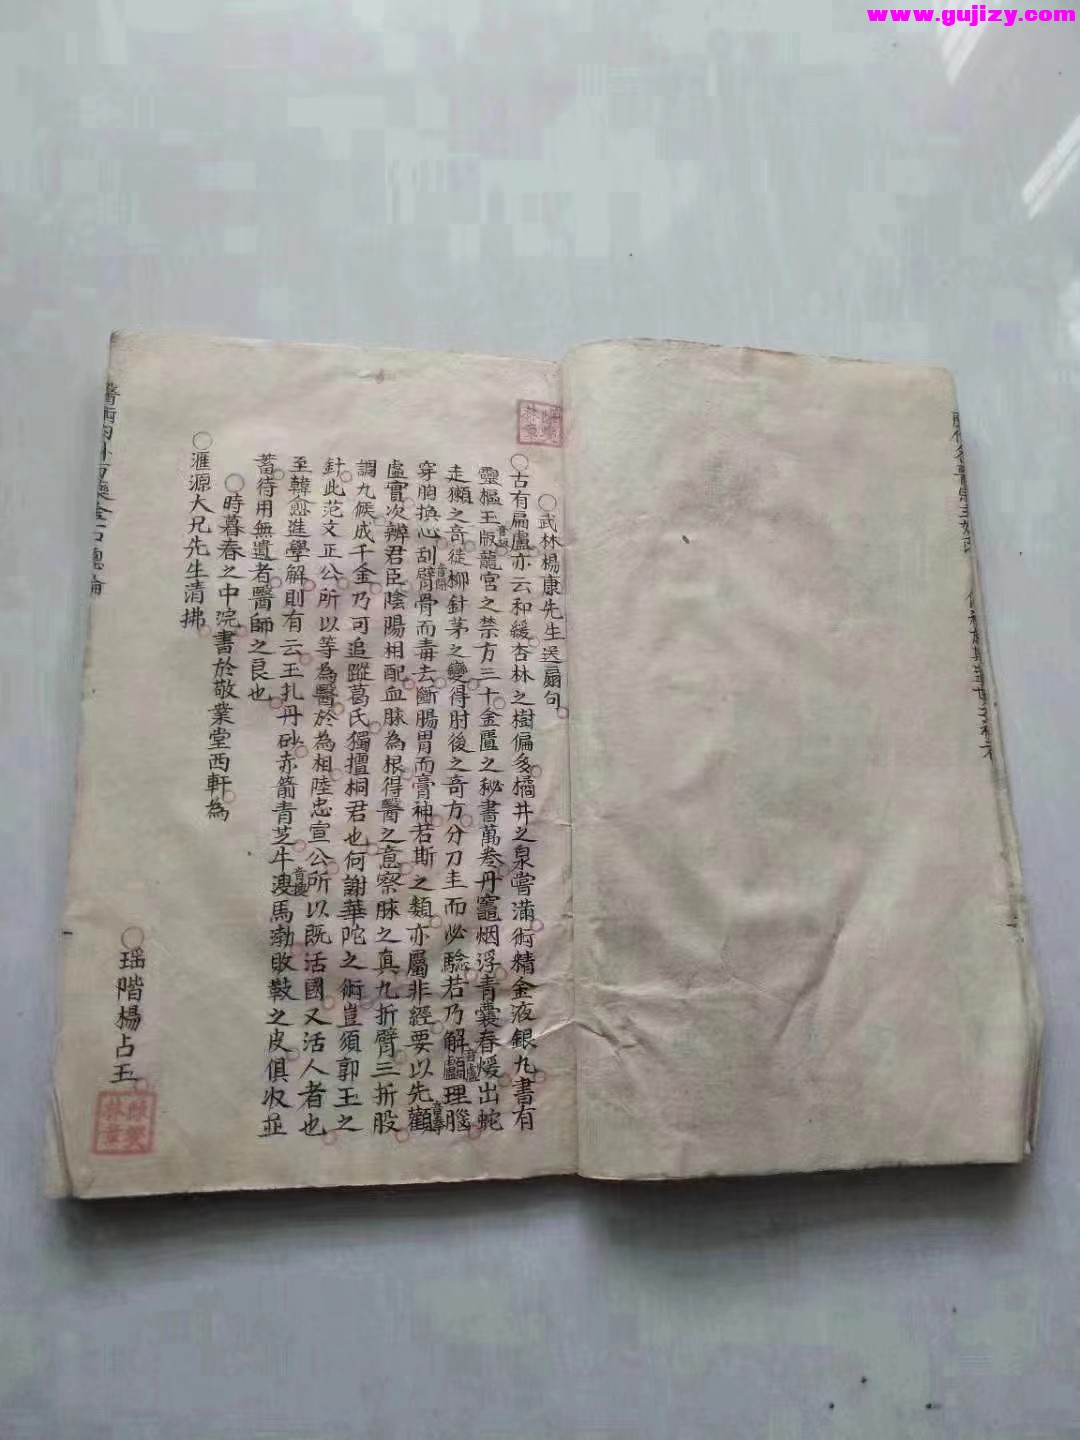 www.gujizy.com
○武林楊康先生送扇句
○古有扁盧亦云和緩杏林之樹偏多橘井之泉嘗滿術精金液銀九書有
靈樞玉版龍宮之禁方三十金匱之秘書萬卷丹竈烟浮青囊春煖出蛇
走獺之奇徒柳針茅之變得肘後之奇方分刀圭而必驗若乃解顱理腦
穿胸換心刮臂骨而毒去斷腸胃而膏神若斯之類亦屬非經要以先觀
虛實次辨君臣陰陽相配血脉為根得醫之意察脉之真九折臂三折股
調九候成千金乃可追蹤葛氏獨擅桐君也何謝華陀之術豈須郭玉之
針此范文正公所以等為醫於為相陸忠宣公所以既活國又活人者也
至韓愈進學解則有云玉扎丹砂赤箭青芝牛溲馬渤敗鼓之皮俱收並
蓄待用無遺者醫師之良也
○時暮春之中浣書於敬業堂西軒為
○滙源大兄先生清拂
○瑶階楊占玉